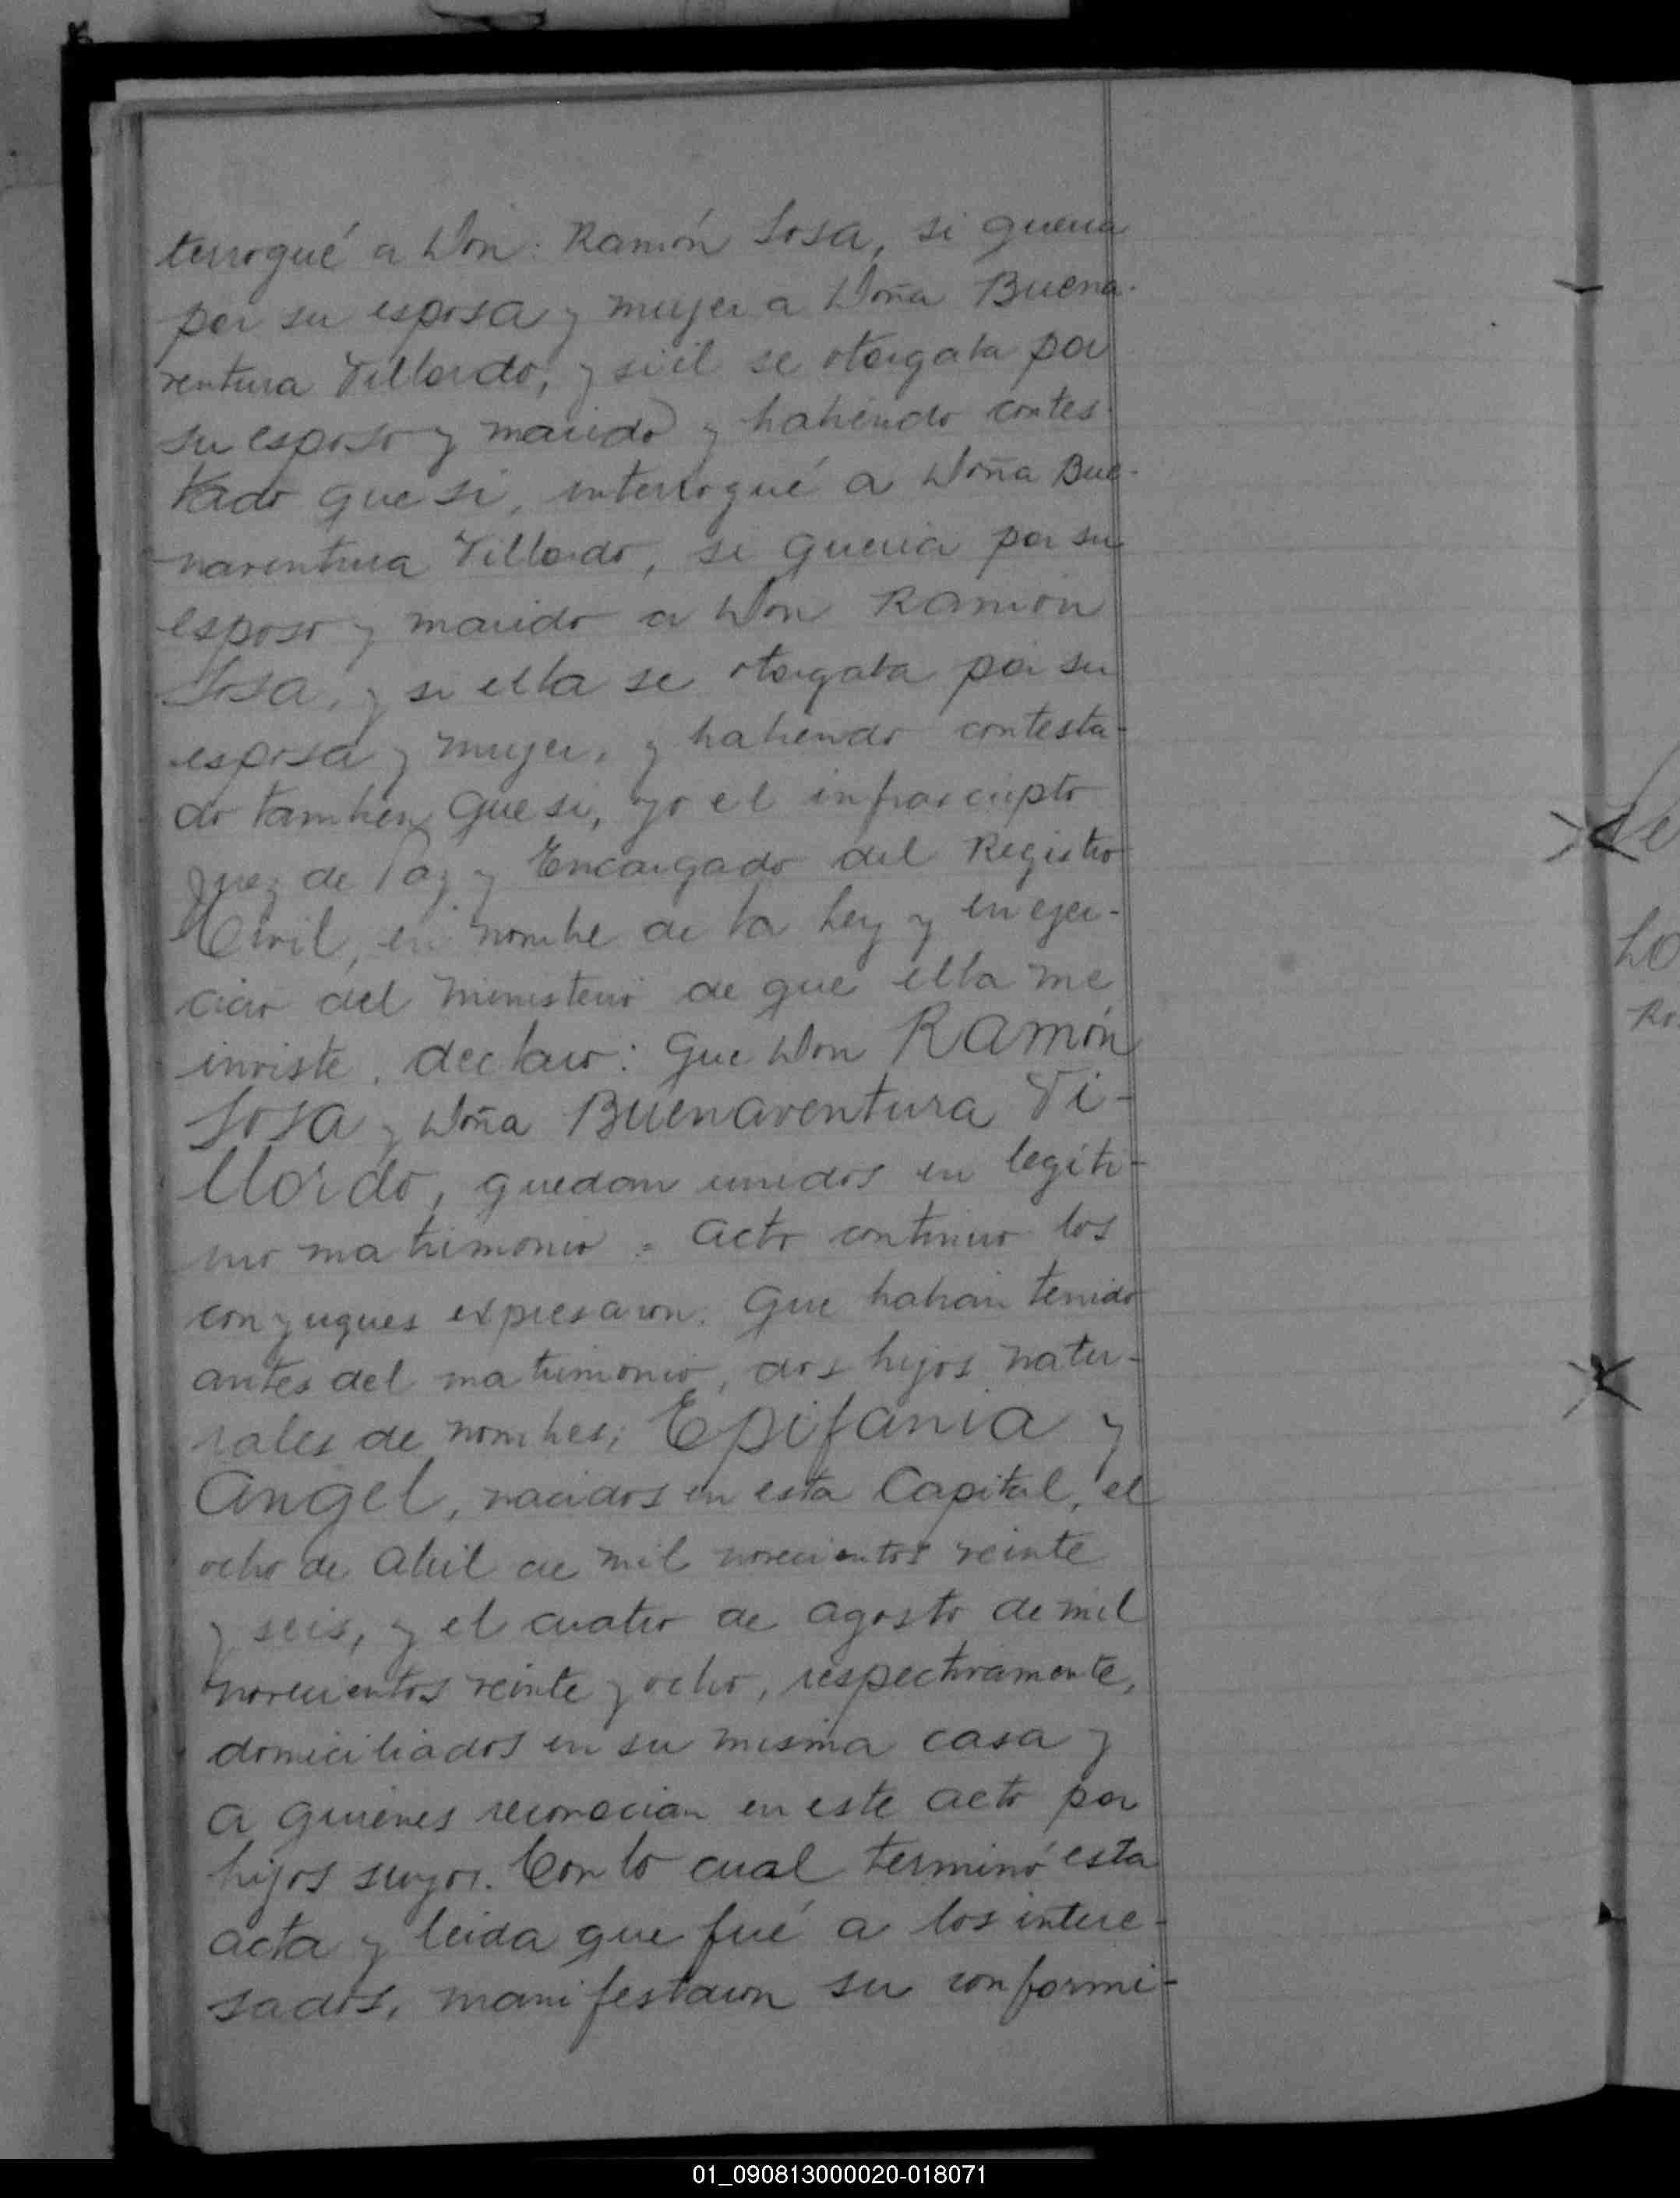 terrogué a Don: Ramón Sosa, si queria
por su esposa y mujer a Doña Buena-
ventura Tillordo, y si él se otorgaba por
su esposo y marido y habiendo contes-
tado que si, interrogué a Doña Bue-
naventura Tillordo, si queria por su
esposo y marido a Don Ramón
Sosa, y si ella se otorgaba por su
esposa y mujer, y habiendo contesta-
do tambien que si, yo el infrascripto
Juez de Paz y Encargado del Registro
Civil, en nombre de la Ley y en ejer-
cicio del ministerio de que ella me
inviste, declaro: Que Don Ramón
Sosa y Doña Buenaventura Ti-
llordo, quedan unidos en legiti-
mo matrimonio. Acto continuo los
conyugues expresaron: Que habian tenido
antes del matrimonio, dos hijos natu-
rales de nombres; Epifania y
Angel, nacidos en esta Capital, el
ocho de Abril de mil novecientos veinte
y seis, y el cuatro de Agosto de mil
novecientos veinte y ocho, respectivamente,
domiciliados en su misma casa y
a quienes reconocian en este acto por
hijos suyos. Con lo cual terminó esta
acta y leida que fué a los intere-
sados, manifestaron su conformi-
01_090813000020-018071